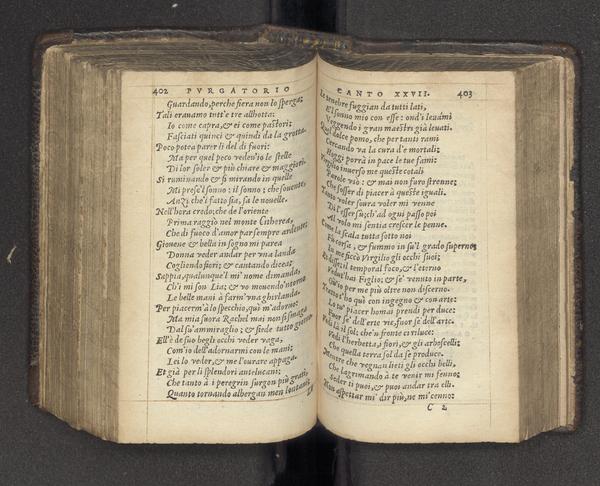 402 PVRGATORIO
Guardando, perche fiera non lo sperga;
Tali eravamo tutt'e tre allhotta;
Io come capra, & ei come pastori;
Fasciati quinci & quindi da la grotta.
Poco potea parer li del di fuori:
Ma per quel poco vedev'io le stelle
Di lor soler & più chiare & maggiori.
Si ruminando & si mirando in quelle
Mi prese'l sonno: il sonno; che sovente,
Anzi che'l fatto sia, sa le novelle.
Nell'hora credo; che de l'oriente
Prima raggiò nel monte Citherea,
Che di fuoco d'amor par sempre ardente;
Giovene & bella in sogno mi parea
Donna veder andar per una landa
Cogliendo fiori; & cantando dicea;
Sappia, qualunque'l mi' nome dimanda,
Ch'i mi son Lia; & vo movendo'ntorno
Le belle mani à farm'una ghirlanda.
Per piacerm'à lo specchio, quì m'adorno:
Ma mia suora Rachel mai non si smaga
Dal su' ammiraglio; & siede tutto giorno.
Ell'è de suo begli occhi veder vaga,
Com'io dell'adornarmi con le mani:
Lei lo veder, & me l'ovrare appaga.
Et già per li splendori antelucani;
Che tanto à i peregrin surgon più grati,
Quanto tornando albergan men lontani;
CANTO XXVII. 403
Le tenebre fuggian da tutti lati,
E'l sonno mio con esse: ond'i levàmi
Veggendo i gran maestri già levati.
Quel dolce pomo, che per tanti rami
Cercando va la cura d'e mortali;
Hoggi porrà in pace le tue fami:
Virgilio inverso me queste cotali
Parole usò: & mai non furo strenne;
Che fosser di piacer à queste iguali.
Tanto voler sovra voler mi venne
Di l'esser sù; ch'ad ogni passo poi
Al volo mi sentia crescer le penne.
Come la scala tutta sotto noi
Fù corsa, & fummo in su'l grado superno;
In me ficcò Virgilio gli occhi suoi;
Et disse; il temporal foco, & l'eterno
Vedut'hai Figlio; & se' venuto in parte,
Ov'io per me più oltre non discerno.
Tratto t'ho quì con ingegno & con arte:
Lo tu' piacer homai prendi per duce:
Fuor se' dell'erte vie, fuor se' dell'arte.
Vedi là il sol; che'n fronte ti riluce:
Vedi l'herbetta, i fiori, & gli arboscelli;
Che quella terra sol da se produce.
Mentre che vegnan lieti gli occhi belli,
Che lagrimando à te venir mi fenno;
Seder ti puoi, & puoi andar tra elli.
Non aspettar mi' dir più, ne mi' cenno:
C 2